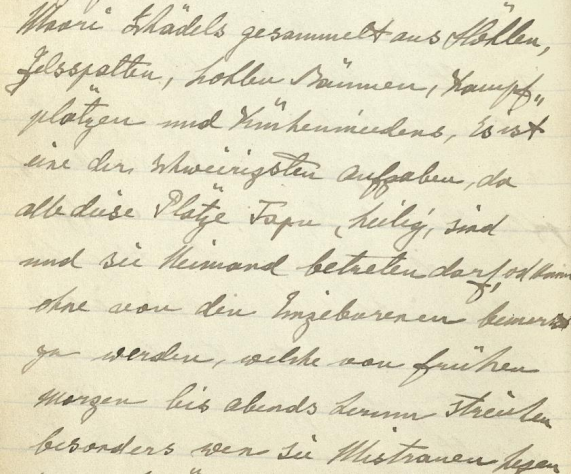 Maori Schädels gesammelt aus Höhlen,
Felsspalten, hohlen Bäumen, Kampf„
plätzen und Küchenmiedens, Es ist
eine der schweirigsten Aufgaben, da
alle diese Plätze Tapu, heilig, sind
und sie Niemand betreten darf, od kann
ohne von den Eingeborenen bemerkt
zu werden, welche von frühen
Morgen bis abends herum streichen
besonders wen sie Mistrauen hegen